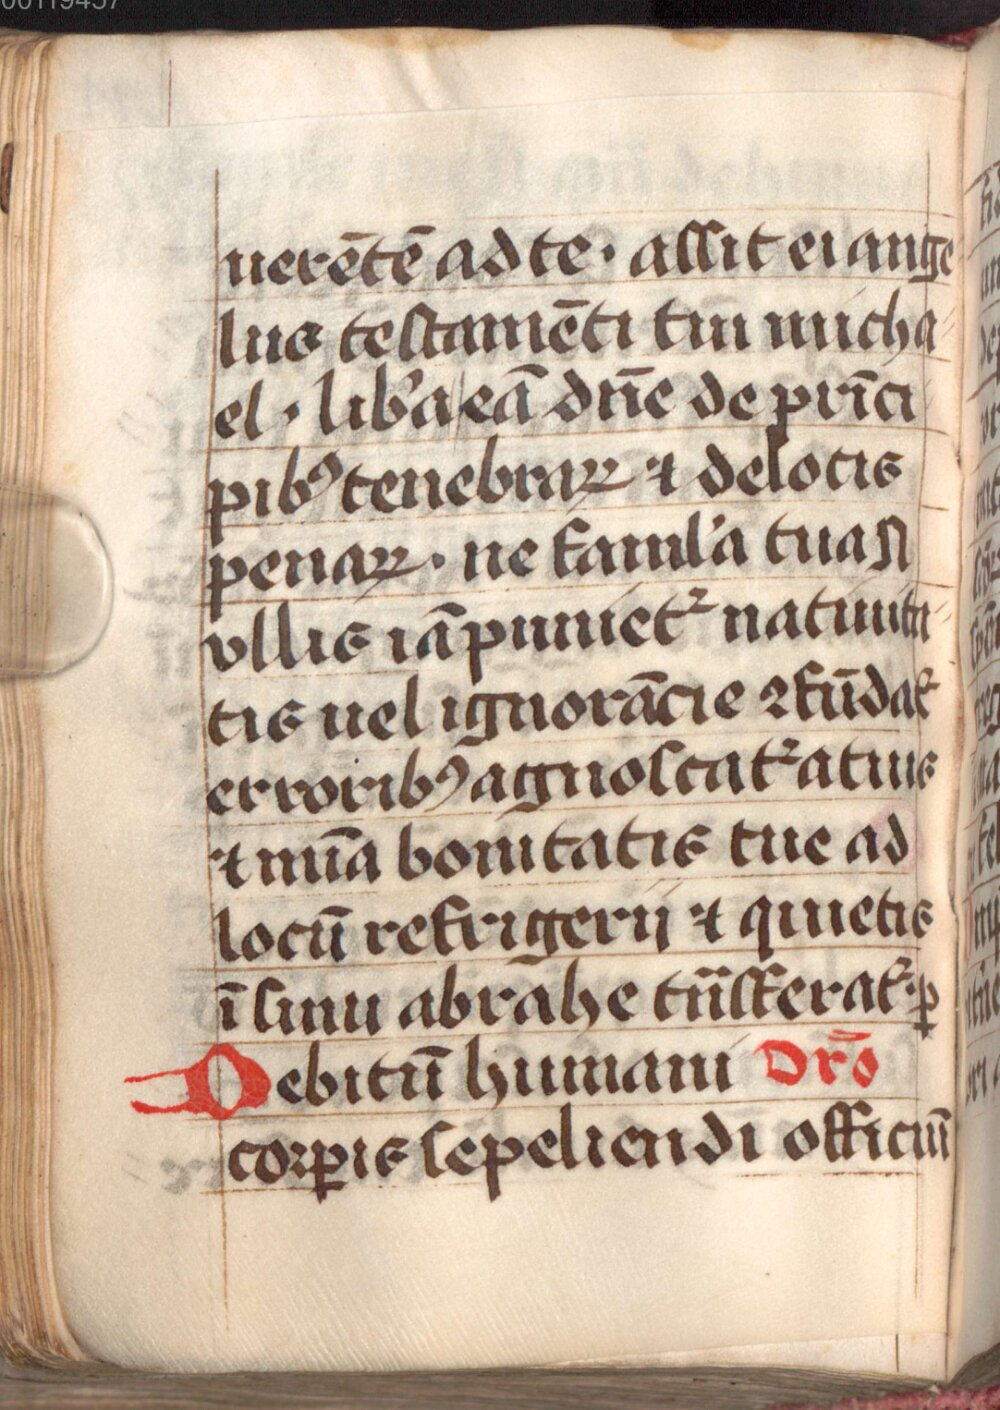 uerētē ad te · assit ei ange
lus testamēti tui micha
el · lib'a eā dn̄e de prīci
pibꝰ tenebraꝝ ⁊ de locis
penaꝝ · ne famul'a tua n̄
vllis iā puniet᷑ natiuita
tis uel ignorācie ꝯfūdat᷑
erroribꝰ agnoscat᷑ a tuis
⁊ mīa bonitatis tue ad
locū refrigerij ⁊ quietis
ī sinu abrahe trāsferat᷑ · ꝑ
Debitū humani Orō
corꝑis sepeliendi officiū